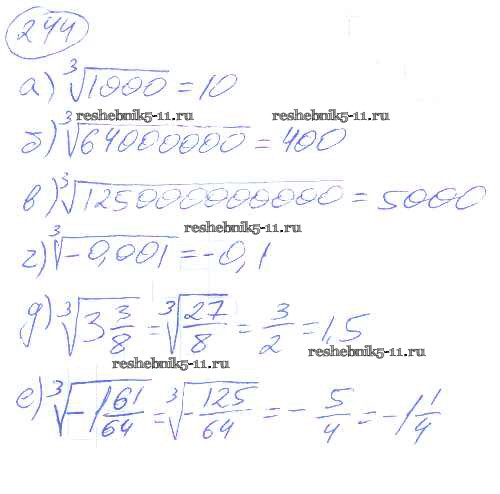 244
а) ∛1000 = 10
reshebnik5-11.ru reshebnik5-11.ru
б) ∛64000000 = 400
в) ∛125000000000 = 5000
reshebnik5-11.ru
г) ∛-0,001 = -0,1
д) ∛3 3/8 = ∛27/8 = 3/2 = 1,5
reshebnik5-11.ru reshebnik5-11.ru
е) ∛-1 61/64 = ∛-125/64 = -5/4 = -1 1/4